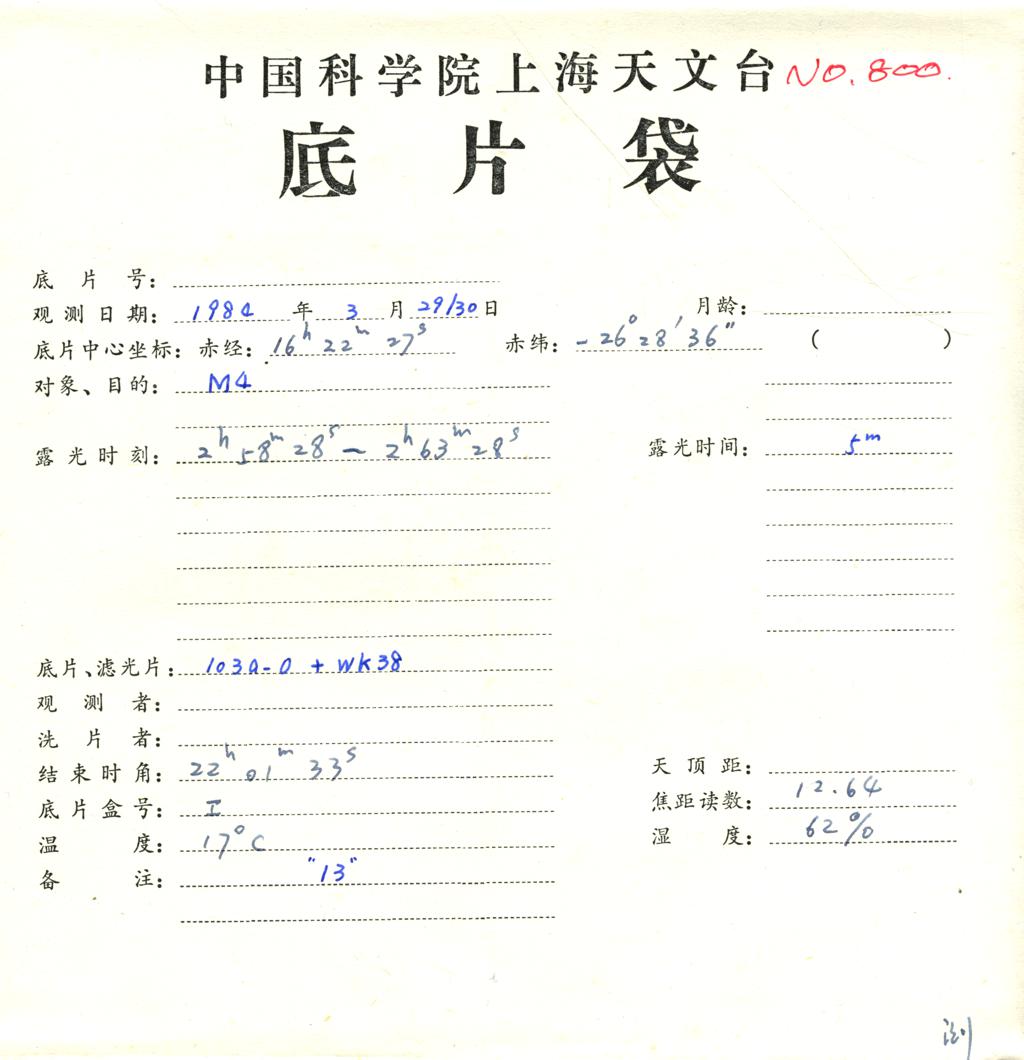 中国科学院上海天文台 NO. 800.
底片袋
底片号:
观测日期: 1984 年 3 月 29/30 日 月龄:
底片中心坐标: 赤经: 16h 22m 27s 赤纬: -26° 28′ 36″ ( )
对象、目的: M4
露光时刻: 2h 58m 28s — 2h 63m 28s 露光时间: 5m
底片、滤光片: 103a-O + WK38
观测者:
洗片者:
结束时角: 22h 01m 33s 天顶距:
底片盒号: I 焦距读数: 12.64
温度: 17°C 湿度: 62%
备注: "13"